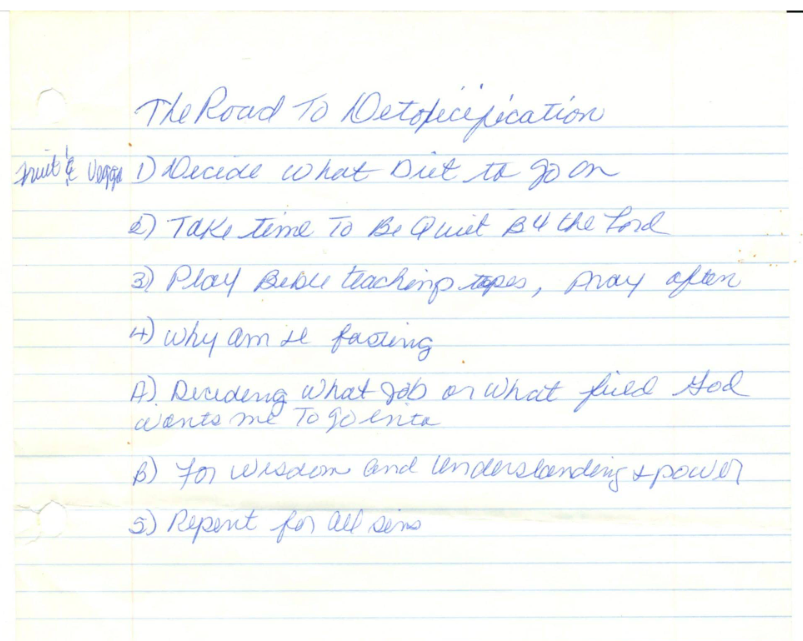 The Road To Detoxicification
fruit & Veggs 1) Decide what Diet to go on
2) Take time To Be Quiet B4 the Lord
3) Play Bible teaching tapes, pray often
4) Why am I fasting
A) Deciding what Job or what field God
wants me To go into
B) For wisdom and understanding & power
5) Repent for all sins